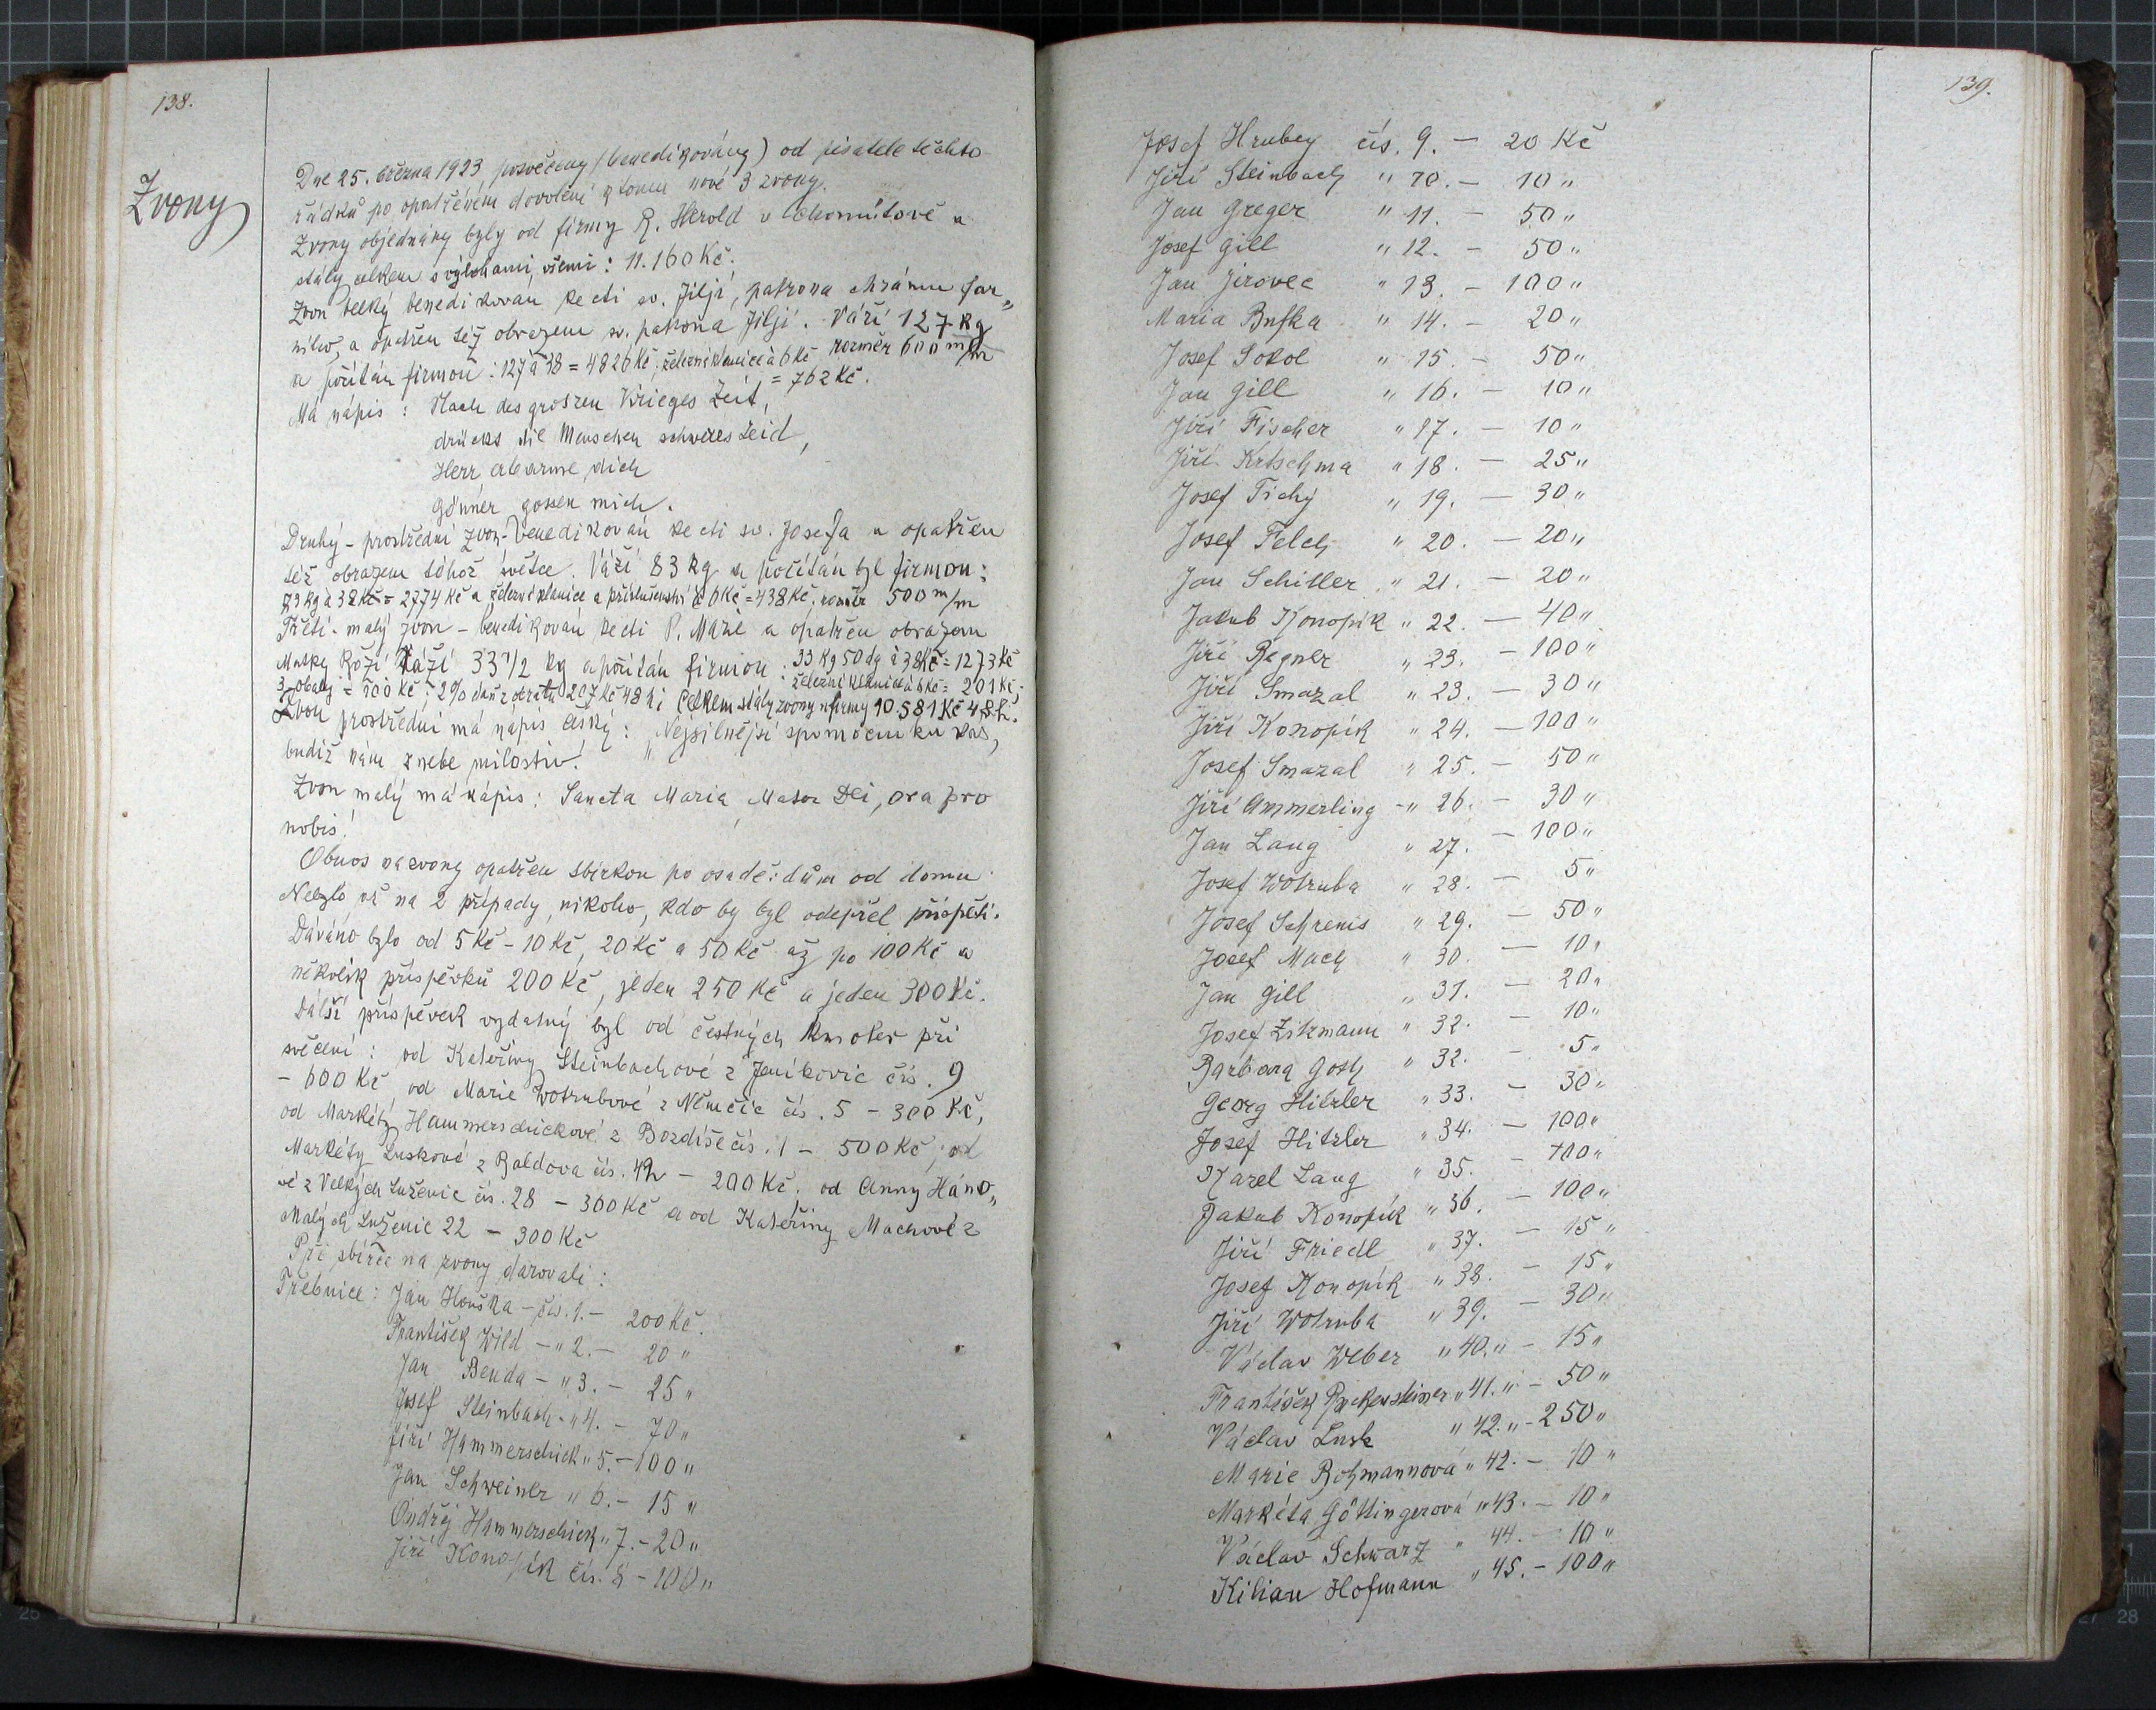 138.
Zvony
Dne 25. března 1923 posvěceny (benedikovány) od pisatele těchto
řádků po opatřeném dovolení k tomu nové 3 zvony.
Zvony objednány byly od firmy R. Herold v Chomutově a
stály celkem s výlohami všemi: 11.160 Kč.
Zvon velký benedikován ke cti sv. Jiljí, patrona chrámu far„
ního, a opatřen též obrazem sv. patrona Jiljí. Váží 127 kg
a počítán firmou: 127 à 38 = 4826 Kč; železné klanice à 6 Kč rozměr 600 m/m
= 762 Kč.
Má nápis: Nach des groszen Krieges Zeit,
drückt die Menschen schweres Leid,
Herr, erbarme dich
Gönner gossen mich.
Druhý - prostřední zvon - benedikován ke cti sv. Josefa a opatřen
též obrazem téhož světce. Váží 83 kg a počítán byl firmou:
73 kg à 38 Kč = 2774 Kč a železné klanice a příslušenství à 6 Kč = 438 Kč, rozměr 500 m/m
Třetí - malý zvon - benedikován ke cti P. Marie a opatřen obrazem
Matky Boží. Váží 33 1/2 kg a počítán firmou: 33 kg 50 dg à 38 Kč = 1273 Kč
železné klanice à 6 Kč = 201 Kč;
3 obaly = 100 Kč; 2% daň z obratu 207 Kč 48 h; Celkem stály zvony u firmy 10.581 Kč 48 h.
Zvon prostřední má nápis český: „Nejsilnější spomocníku náš,
budiž nám z nebe milostiv!
Zvon malý má nápis: Sancta Maria, Mater Dei, ora pro
nobis!
Obnos na zvony opatřen sbírkou po osadě: dům od domu.
Nebylo až na 2 případy, nikoho, kdo by byl odepřel přispěti.
Dáváno bylo od 5 Kč - 10 Kč, 20 Kč a 50 Kč až po 100 Kč a
několik příspěvků 200 Kč, jeden 250 Kč a jeden 300 Kč.
Další příspěvek vydatný byl od čestných kmoter při
svěcení: od Kateřiny Steinbachové z Janíkovic čís. 9
- 600 Kč, od Marie Wotrubové z Němčic čís. 5 - 300 Kč,
od Markéty Hammerschickové z Bozdíše čís. 1 - 500 Kč; od
Markéty Luskové z Baldova čís. 42 - 200 Kč, od Anny Háno„
vé z Velkých Luženic čís. 28 - 300 Kč a od Kateřiny Machové z
Malých Luženic 22 - 300 Kč
Při sbírce na zvony darovali:
Třebnice: Jan Houška - čís. 1. - 200 Kč.
František Wild - „ 2. - 20 „
Jan Benda - „ 3. - 25 „
Josef Steinbach - „ 4. - 70 „
Jiří Hammerschick „ 5. - 100 „
Jan Schweiner „ 6. - 15 „
Ondřej Hammerschick „ 7. - 20 „
Jiří Konopík čís. 8 - 100 „
139.
Josef Hrubey čís. 9. - 20 Kč
Jiří Steinbach „ 10. - 10 „
Jan Greger „ 11. - 50 „
Josef Gill „ 12. - 50 „
Jan Jirovec „ 13. - 100 „
Maria Bufka „ 14. - 20 „
Josef Sokol „ 15. - 50 „
Jan Gill „ 16. - 10 „
Jiří Fischer „ 17. - 10 „
Jiří Krtschma „ 18. - 25 „
Josef Tichý „ 19. - 30 „
Josef Felch „ 20. - 20 „
Jan Schiller „ 21. - 20 „
Jakub Konopík „ 22. - 40 „
Jiří Regner „ 23. - 100 „
Jiří Smazal „ 23. - 30 „
Jiří Konopík „ 24. - 100 „
Josef Smazal „ 25. - 50 „
Jiří Ammerling - „ 26. - 30 „
Jan Lang „ 27. - 100 „
Josef Wotruba „ 28. - 5 „
Josef Schrenis „ 29. - 50 „
Josef Mach „ 30. - 10 „
Jan Gill „ 31. - 20 „
Josef Zitzmann „ 32. - 10 „
Barbara Gosch „ 32. - 5 „
Georg Hitzler „ 33. - 30 „
Josef Hitzler „ 34. - 100 „
Karel Lang „ 35. - 100 „
Jakub Konopík „ 36. - 100 „
Jiří Friedl „ 37. - 15 „
Josef Konopík „ 38. - 15 „
Jiří Wotruba „ 39. - 30 „
Václav Weber „ 40. „ - 15 „
František Rockensteiner „ 41. „ - 50 „
Václav Lusk „ 42. „ - 250 „
Marie Bohmannová „ 42. - 10 „
Markéta Göttingerová „ 43. - 10 „
Václav Schwarz „ 44. - 10 „
Kilian Hofmann „ 45. - 100 „